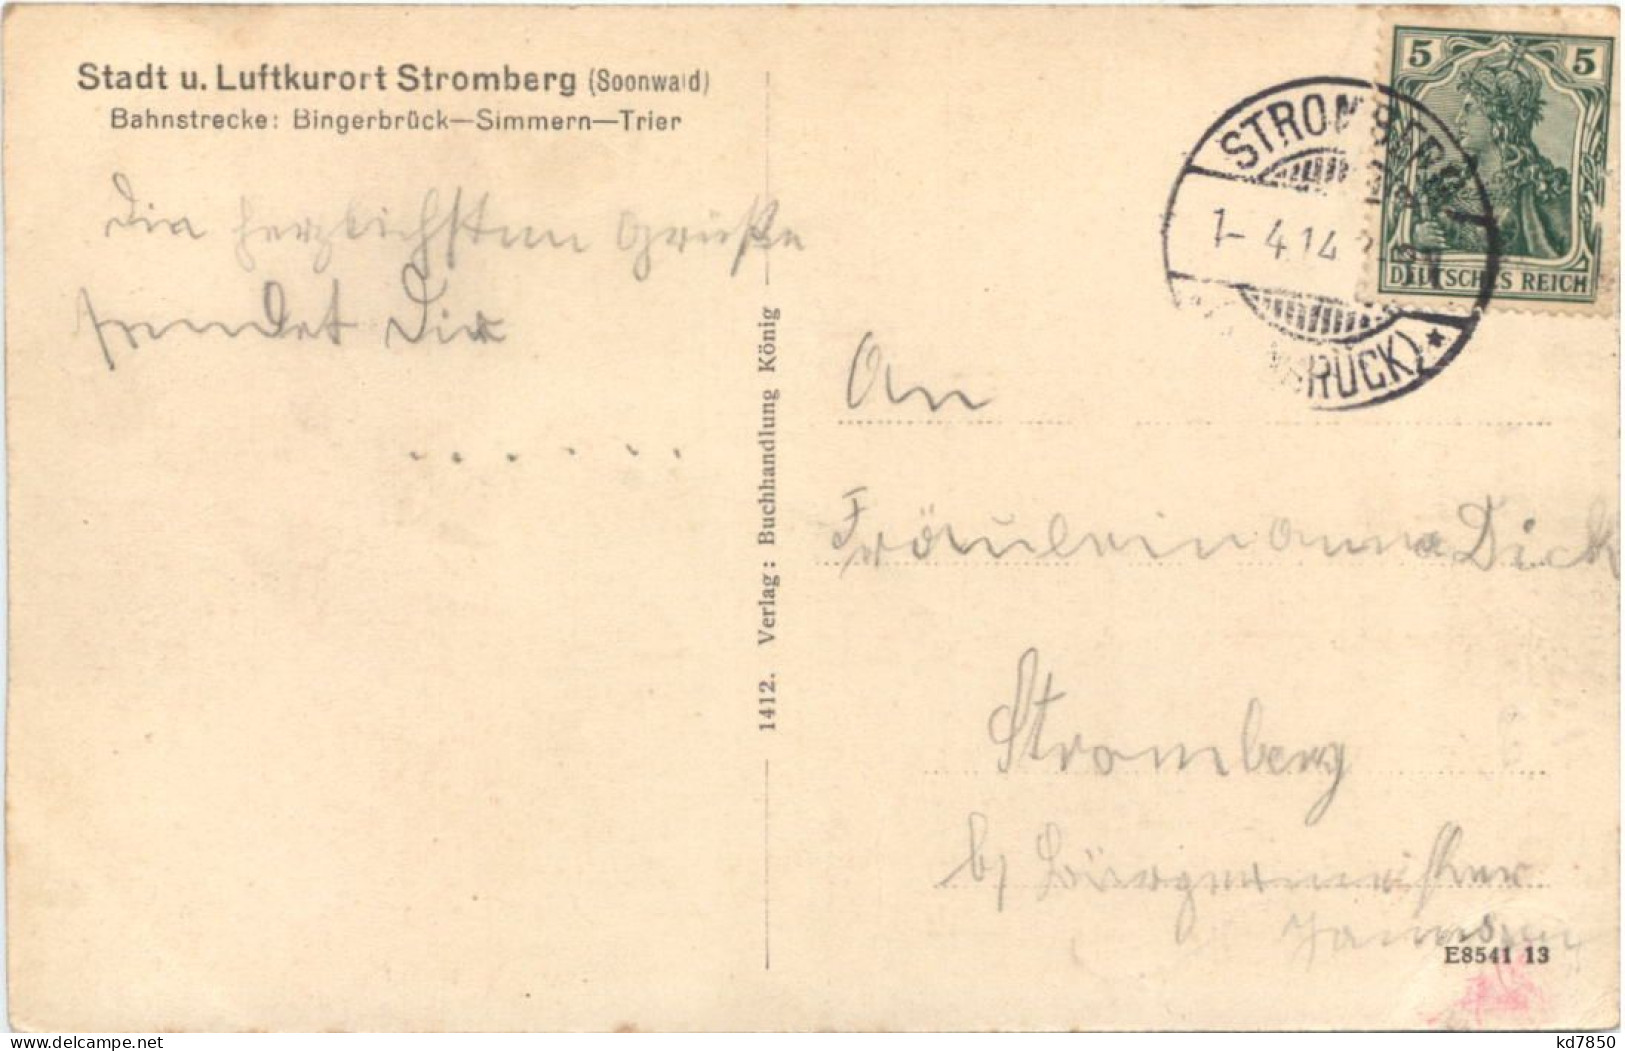 Stadt u. Luftkurort Stromberg (Soonwald)
Bahnstrecke: Bingerbrück—Simmern—Trier
Die herzlichsten Grüße
sendet Dir
. . . . . .
1412. Verlag: Buchhandlung König
5 5
DEUTSCHES REICH
STROMBERG
1- 4.14
BRÜCK) *
An
Fräulein Anna Dick
Stromberg
b/ Bürgermeister
E8541 13
delcampe.net
kd7850